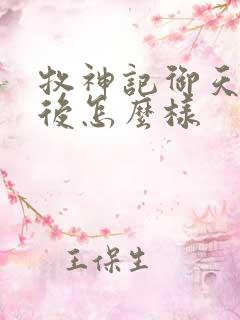 牧神記御天
後怎麼樣
王保生